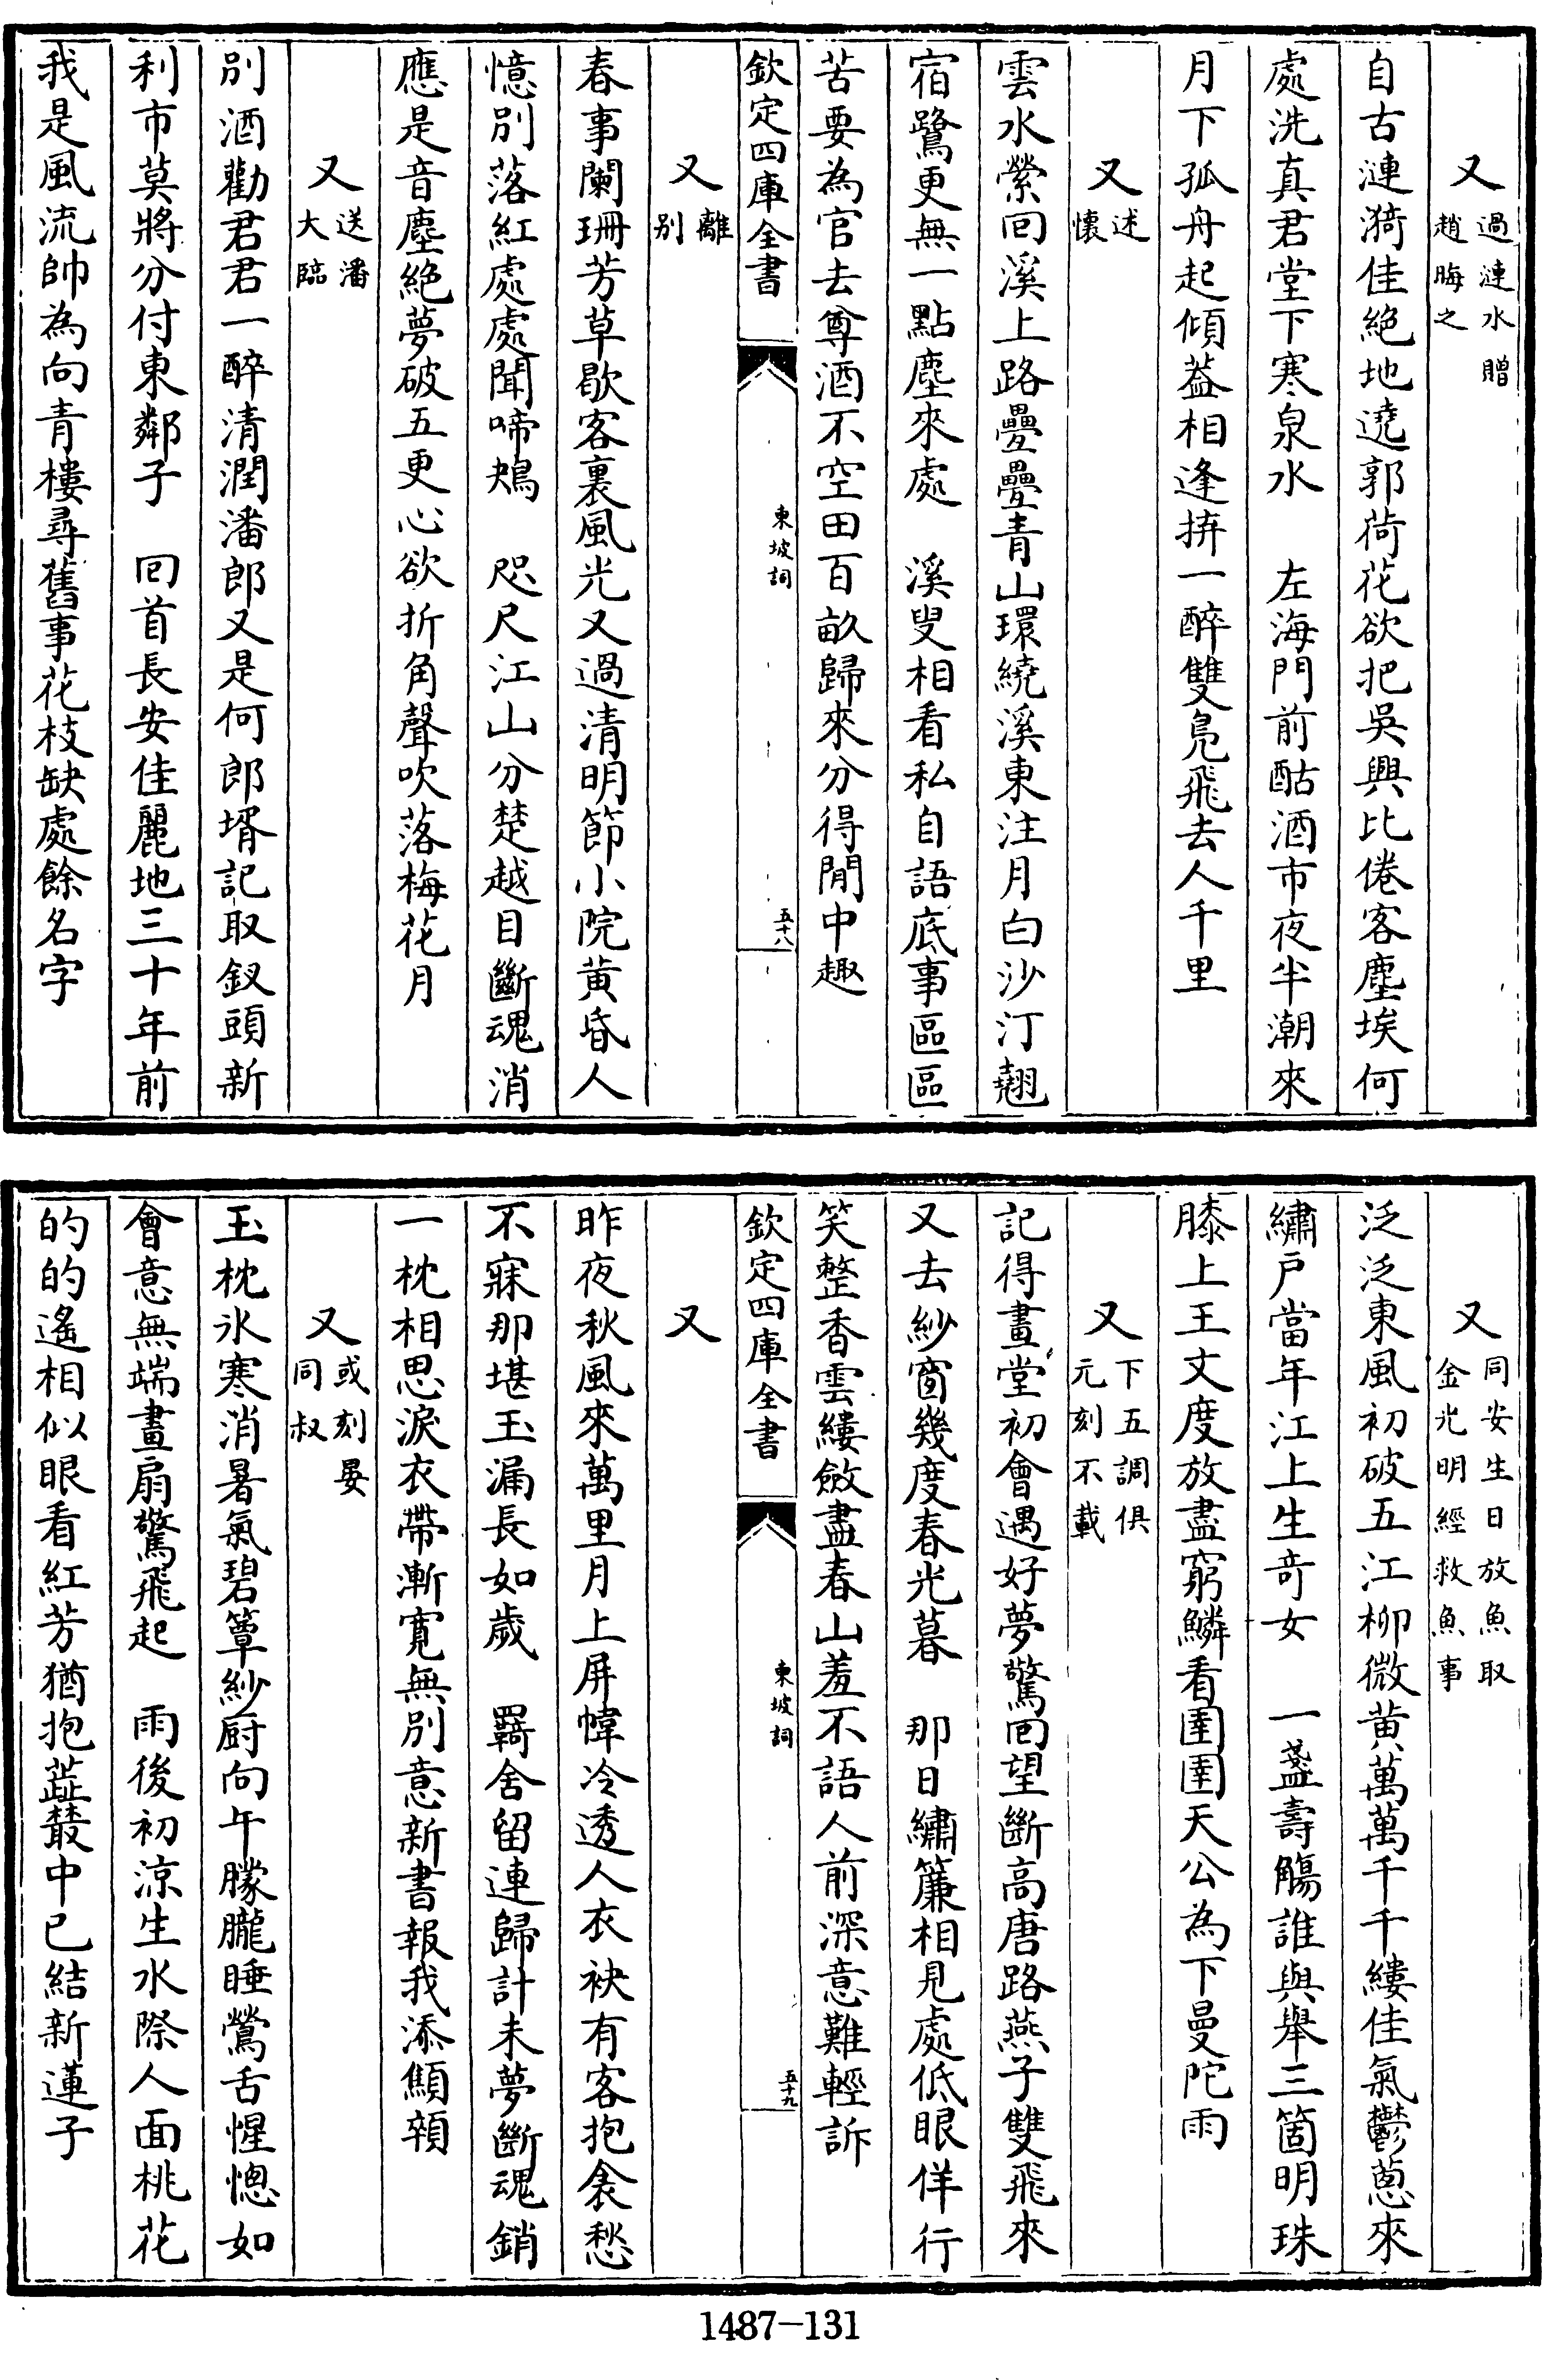 又過漣水贈趙晦之
自古漣漪佳絶地遶郭荷花欲把吳興比倦客塵埃何
處洗真君堂下寒泉水　左海門前酤酒市夜半潮來
月下孤舟起傾葢相逢拚一醉雙鳬飛去人千里
又述懷
雲水縈回溪上路疊疊青山環繞溪東注月白沙汀翹
宿鷺更無一點塵來處　溪叟相看私自語底事區區
苦要為官去尊酒不空田百畝歸來分得閒中趣
欽定四庫全書
東坡詞
五十八
又離别
春事闌珊芳草歇客裏風光又過清明節小院黃昏人
憶別落紅處處聞啼鴂　咫尺江山分楚越目斷魂消
應是音塵絶夢破五更心欲折角聲吹落梅花月
又送潘大臨
別酒勸君君一醉清潤潘郎又是何郎壻記取釵頭新
利市莫將分付東鄰子　回首長安佳麗地三十年前
我是風流帥為向青樓尋舊事花枝缺處餘名字
又同安生日放魚取金光明經救魚事
泛泛東風初破五江柳微黄萬萬千千縷佳氣鬱蔥來
繡戸當年江上生竒女　一盞壽觴誰與舉三箇明珠
膝上王文度放盡窮鱗看圉圉天公為下曼陀雨
又下五調俱元刻不載
記得畫堂初會遇好夢驚回望斷高唐路燕子雙飛來
又去紗窗幾度春光暮　那日繡簾相見處低眼佯行
笑整香雲縷斂盡春山羞不語人前深意難輕訴
欽定四庫全書
東坡詞
五十九
又
昨夜秋風來萬里月上屏幃冷透人衣袂有客抱衾愁
不寐那堪玉漏長如歲　羇舍留連歸計未夢斷魂銷
一枕相思淚衣帶漸寛無別意新書報我添顦顇
又或刻晏同叔
玉枕氷寒消暑氣碧簟紗厨向午朦朧睡鶯舌惺憁如
會意無端畫扇驚飛起　雨後初涼生水際人面桃花
的的遙相似眼看紅芳猶抱蕋叢中已結新蓮子
1487-131